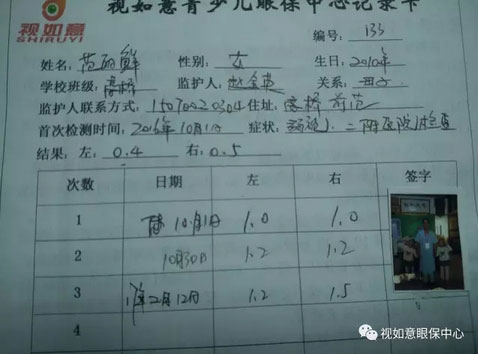 视如意青少儿眼保中心记录卡
视如意
SHIRUYI
编号: 133
姓名: 范丽鲜 性别: 女 生日: 2010年
学校班级: 高桥 监护人: 关系: 母子
监护人联系方式: 住址: 高桥
首次检测时间: 2016年10月1日 症状:
结果: 左: 0.4 右: 0.5
次数 日期 左 右 签字
1 10月1日 1.0 1.0
2 10月30日 1.2 1.2
3 2月12日 1.2 1.5
4
视如意眼保中心